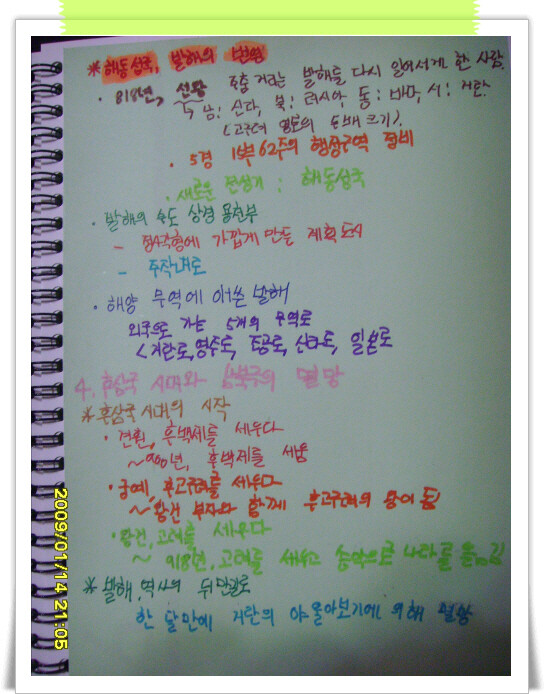 *해동성국, 발해의 번영
· 818년, 선왕 호출 거란는 발해를 다시 일어서게 한 사람.
↳ 남: 신라, 북: 러시아, 동: 바다, 서: 거란.
(고구려 영토의 두배 크기).
· 5경 15부 62주의 행정구역 정비
· 새로운 전성기 : 해동성국
· 발해의 수도 상경 용천부
- 정사각형에 가깝게 만든 계획도시
- 주작대로
· 해양 무역에 애쓴 발해
외국으로 가는 5개의 무역로
<거란로, 영주도, 조공로, 신라도, 일본도
4. 후삼국 시대와 남북국의 멸망
*후삼국시대의 시작
· 견훤, 후백제를 세우다
~900년, 후백제를 세움
· 궁예, 후고구려를 세우다
~ 왕건 부자와 함께 후고구려의 왕이 됨
· 왕건, 고려를 세우다
~ 918년, 고려를 세우고 송악으로 나라를 옮김
* 발해, 역사의 뒤안길로
한 달만에 거란의 야율아보기에 의해 멸망
2009/01/14 21:05